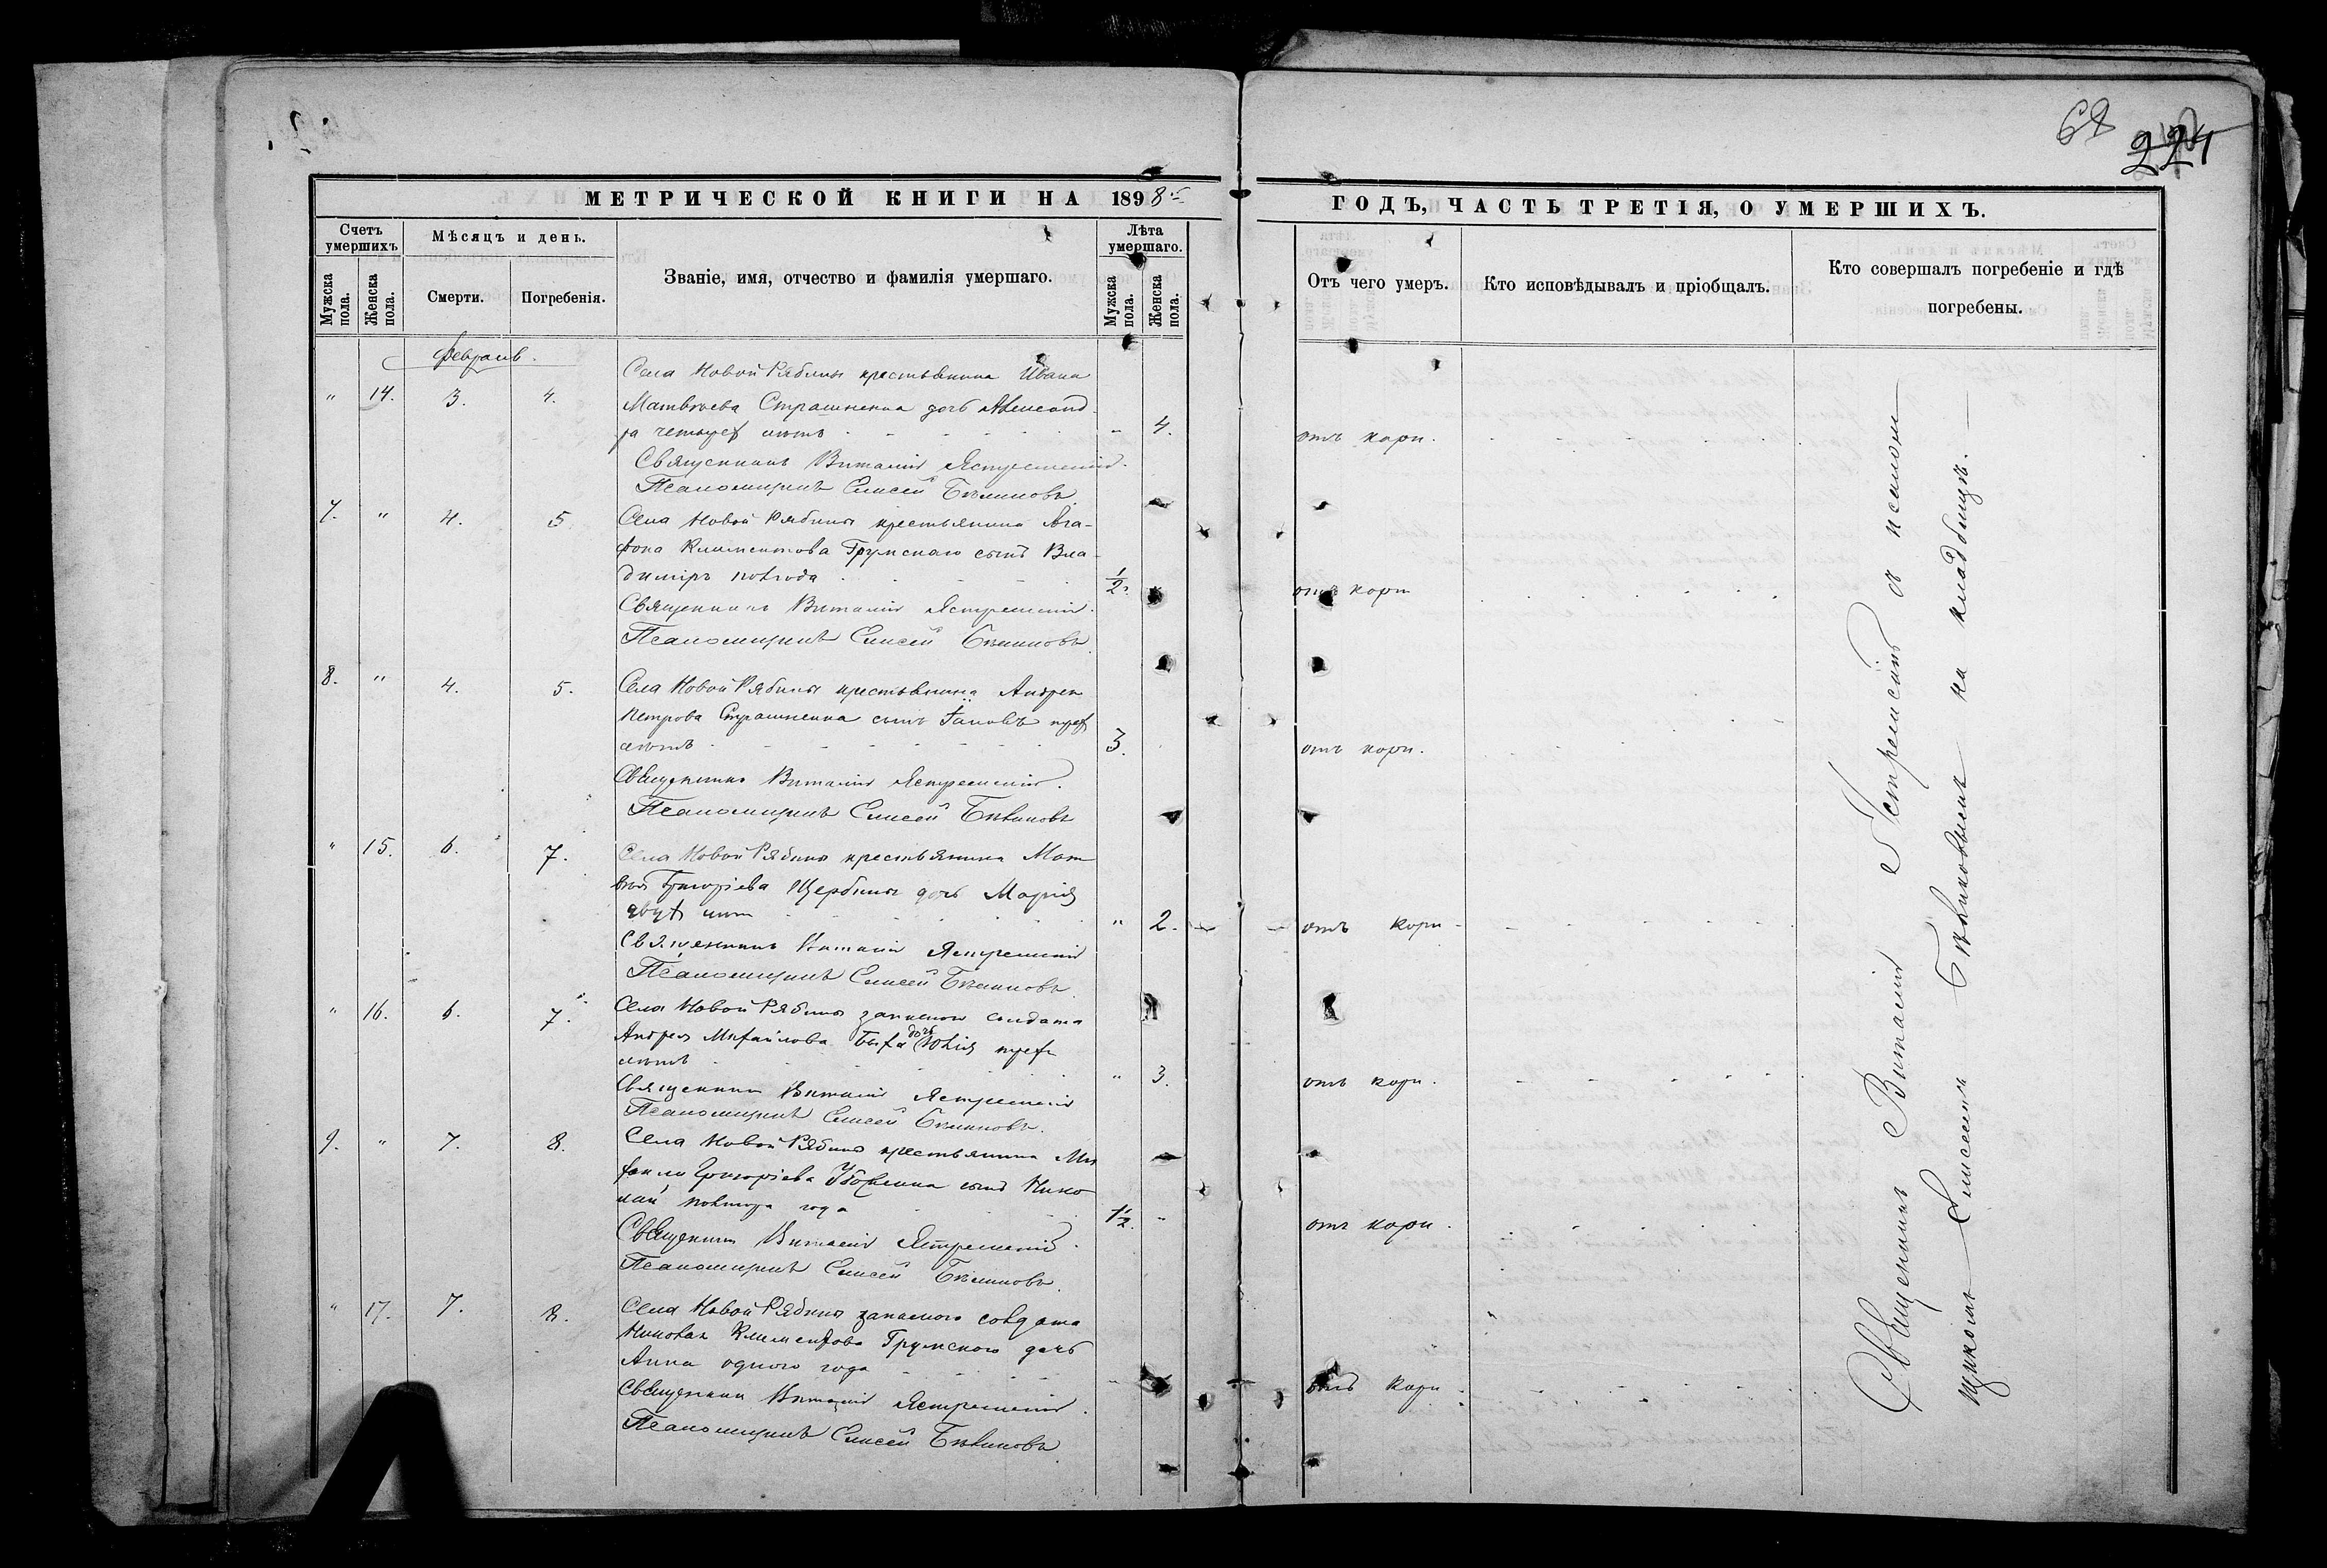 68
224
МЕТРИЧЕСКОЙ КНИГИ НА 1898 ГОДЪ, ЧАСТЬ ТРЕТІЯ, О УМЕРШИХЪ.
Счетъ умершихъ
Мѣсяцъ и день.
Званіе, имя, отчество и фамилія умершаго.
Лѣта умершаго.
Отъ чего умеръ.
Кто исповѣдывалъ и пріобщалъ.
Кто совершалъ погребеніе и гдѣ
погребены.
Мужска пола.
Женска пола.
Смерти.
Погребенія.
Мужска пола.
Женска пола.
Февраль.
Села Новой Рябины крестьянина Ивана
" 14. 3. 4. Матвѣева Страшненка дочь Александ-
ра четырех лѣтъ " 4. отъ кори.
Священникъ Виталій Ястремскій.
Псаломщикъ Елисей Бѣликовъ.
7. " 4. 5 Села Новой Рябины крестьянина Ага-
фона Климентова Грумскаго сынъ Вла-
димiръ полгода 1/2. отъ кори
Священникъ Виталій Ястремскій.
Псаломщикъ Елисей Бѣликовъ.
8. " 4. 5. Села Новой Рябины крестьянина Андрея
Петрова Страшненка сынъ Іаковъ трех
лѣтъ 3. отъ кори.
Священникъ Виталій Ястремскій.
Псаломщикъ Елисей Бѣликовъ
" 15. 6. 7. Села Новой Рябины крестьянина Мат-
вѣя Григоріева Щербины дочь Марія
двух лѣт " 2. отъ кори
Священникъ Виталій Ястремскій
Псаломщикъ Елисей Бѣликовъ.
" 16. 6. 7. Села Новой Рябины запасного солдата
Андрея Михайлова дочь Юлія трех
лѣтъ " 3. отъ кори.
Священникъ Виталій Ястремскій
Псаломщикъ Елисей Бѣликовъ.
9. " 7. 8. Села Новой Рябины крестьянина Ми-
хаила Григоріева сынъ Нико-
лай полтора года 1 1/2. " отъ кори.
Священникъ Виталій Ястремскій.
Псаломщикъ Елисей Бѣликовъ.
" 17. 7. 8. Села Новой Рябины запасного солдата
Николая Климентова Грумского дочь
Анна одного года " отъ кори
Священникъ Виталій Ястремскій.
Псаломщикъ Елисей Бѣликовъ
Священникъ Виталій Ястремскій с псалом-
щикомъ Елисеемъ Бѣликовымъ на кладбищѣ.